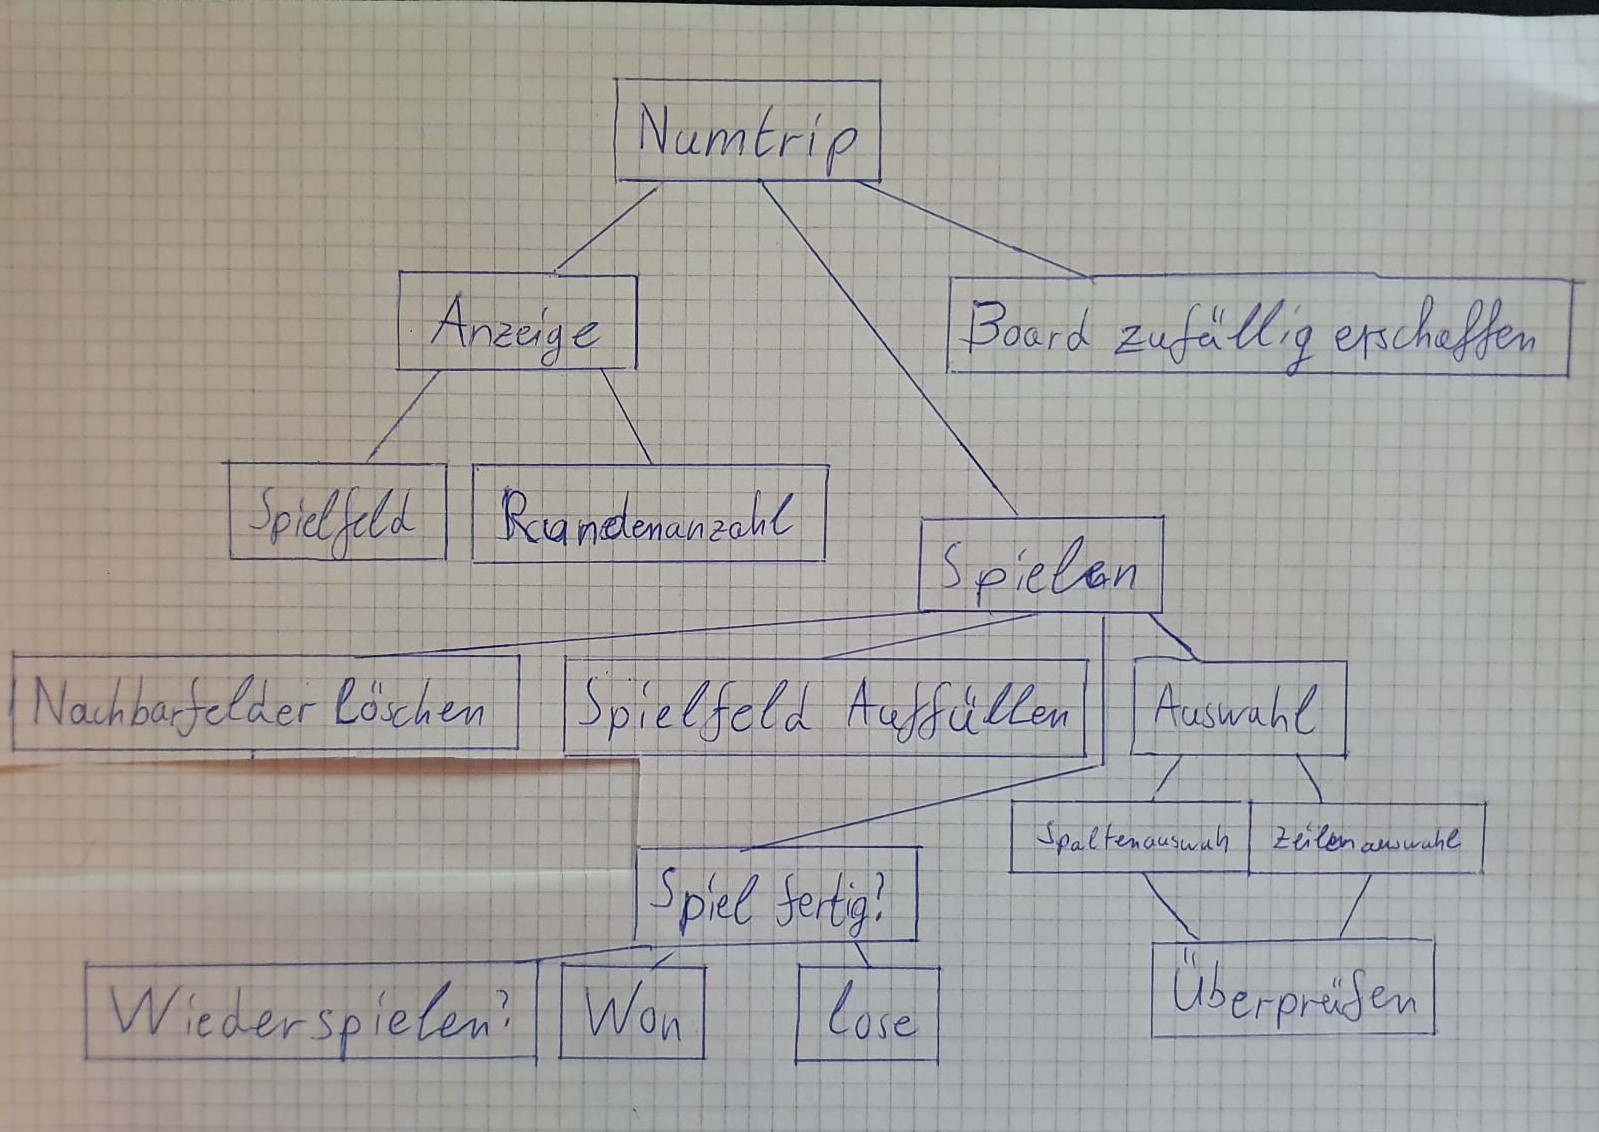 Numtrip
Anzeige
Board zufällig erschaffen
Spielfeld
Rundenanzahl
Spielen
Nachbarfelder löschen
Spielfeld Auffüllen
Auswahl
Spaltenauswah
Zeilenauswahl
Spiel fertig?
Überprüfen
Wiederspielen?
Won
lose